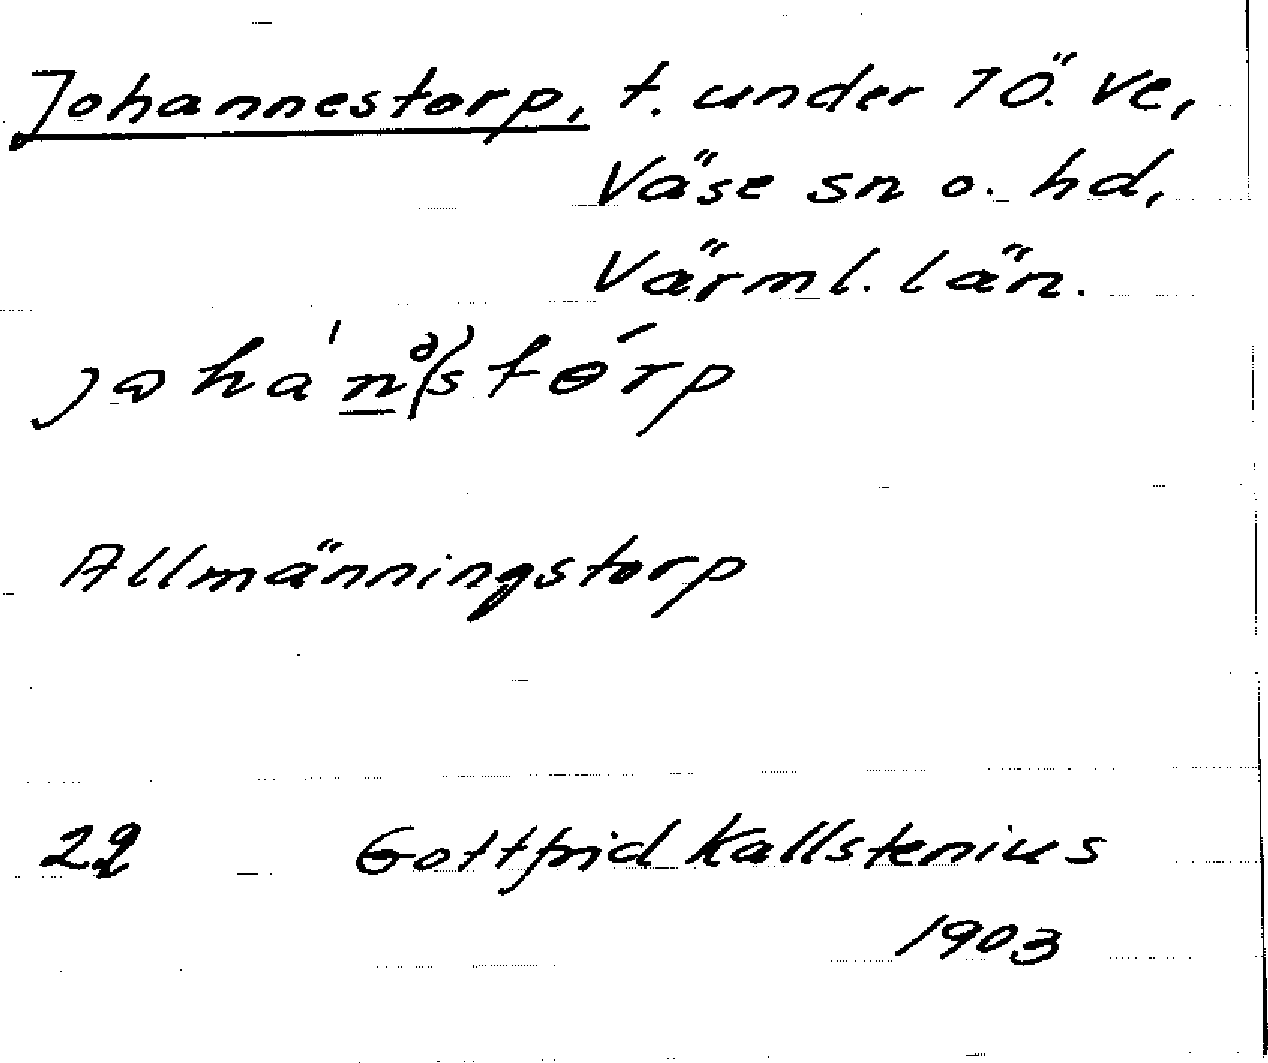 Johannestorp, t. under 7 Ö. Ve,
Väse sn o. hd,
Värml. län.
Allmänningstorp
22 Gottfrid Kallstenius
1903